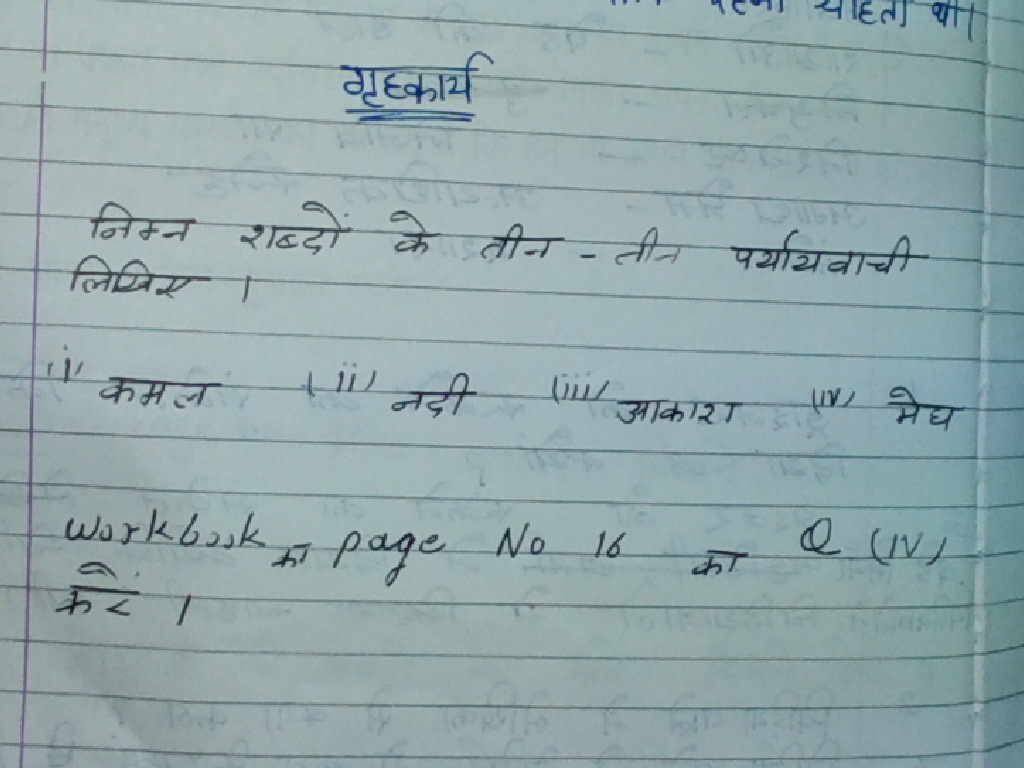 रहना चाहती थी।
गृहकार्य
निम्न शब्दों के तीन - तीन पर्यायवाची
लिखिए ।
(i) कमल (ii) नदी (iii) आकाश (iv) मेघ
workbook का page No 16 का Q (IV)
करें ।